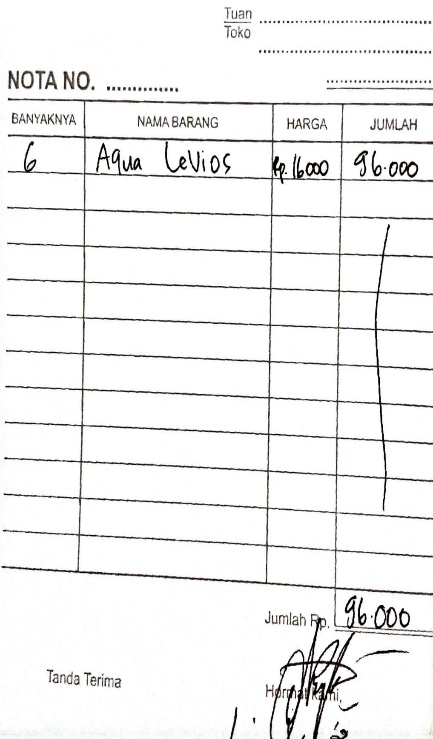 Tuan ..............................
Toko
..............................
NOTA NO. ............. ....................
BANYAKNYA NAMA BARANG HARGA JUMLAH
6 Aqua LeVios Rp. 16000 96.000
Jumlah Rp. 96.000
Tanda Terima Hormat kami,